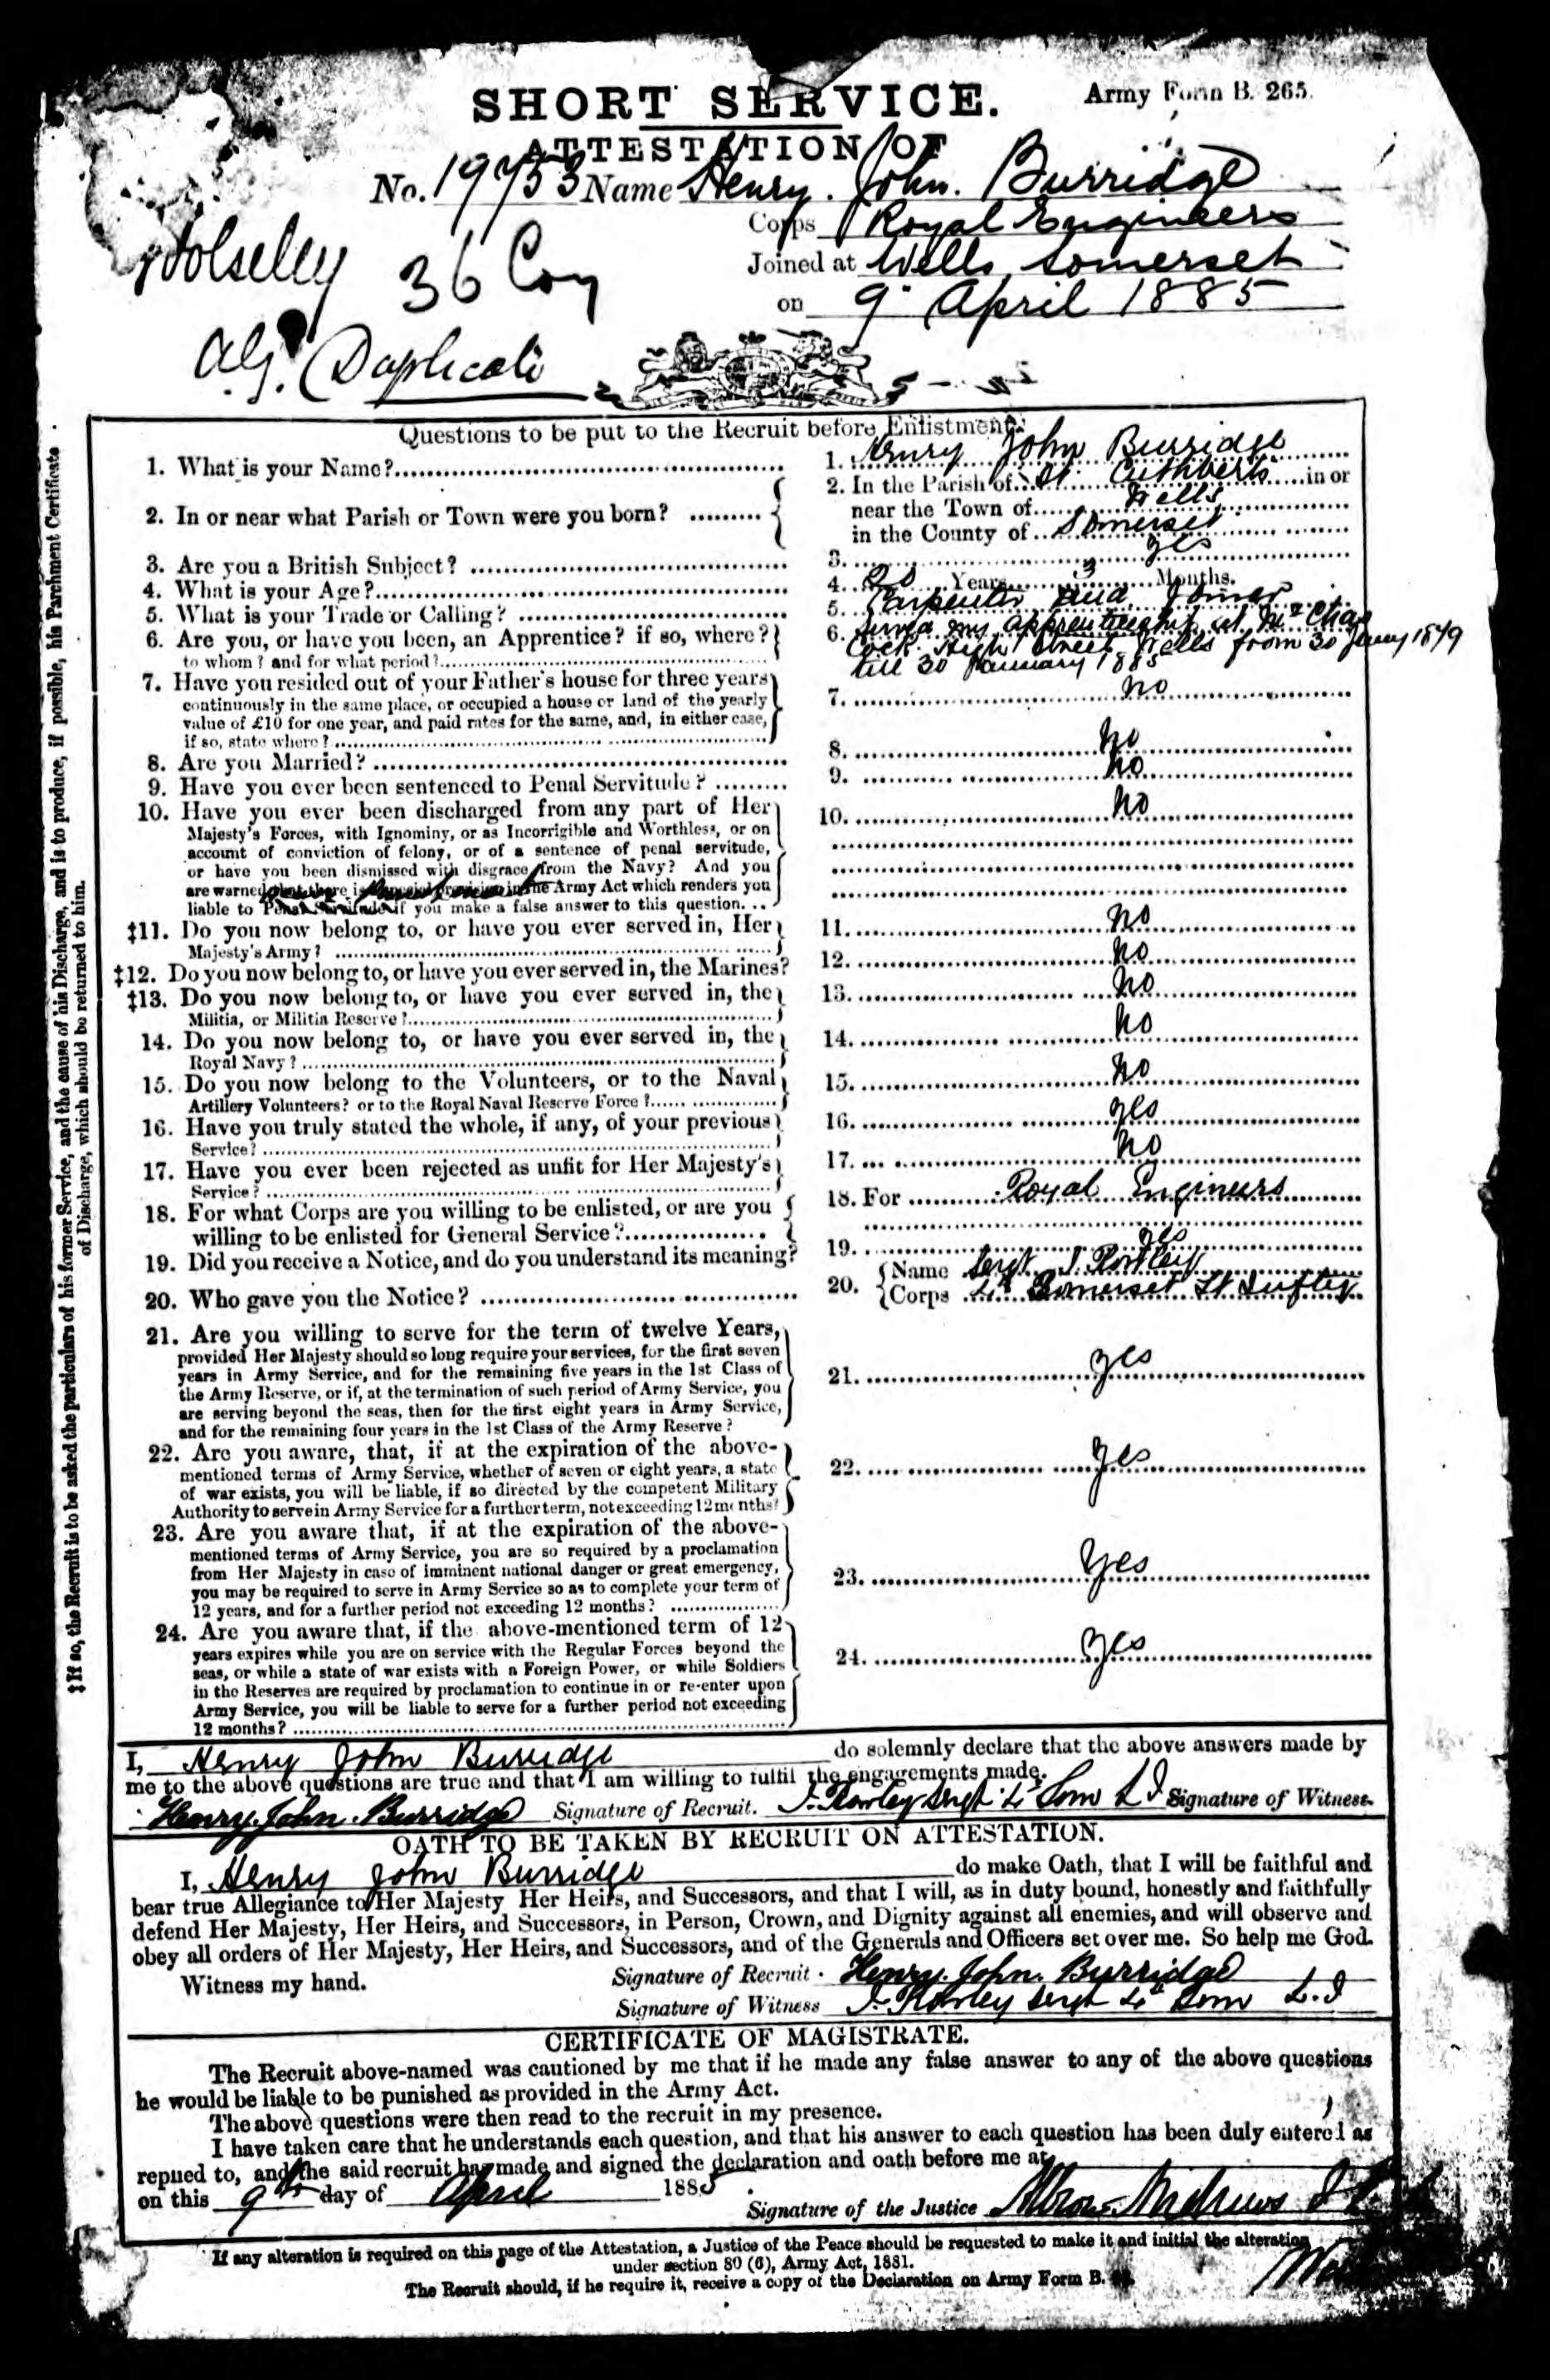 SHORT SERVICE.
Army Form B. 265.
ATTESTATION OF
No. 19753 Name Henry. John. Burridge
Corps Royal Engineers
Wolseley 36 Coy
Joined at Wells, Somerset
on 9th April 1885
Duplicate
Questions to be put to the Recruit before Enlistment.
1. What is your Name?
1. Henry John Burridge
2. In or near what Parish or Town were you born?
2. In the Parish of St Cuthberts in or
near the Town of Wells
in the County of Somerset
3. Are you a British Subject?
3. yes
4. What is your Age?
4. 20 Years 3 Months.
5. What is your Trade or Calling?
5. Carpenter and Joiner
6. Are you, or have you been, an Apprentice? if so, where?
to whom? and for what period?
6. Served my apprenticeship at Mr Chas
Cock High Street Wells from 30 Jany 1879
till 30 January 1885
7. Have you resided out of your Father's house for three years
continuously in the same place, or occupied a house or land of the yearly
value of £10 for one year, and paid rates for the same, and, in either case,
if so, state where?
7. no
8. Are you Married?
8. no
9. Have you ever been sentenced to Penal Servitude?
9. no
10. Have you ever been discharged from any part of Her
Majesty's Forces, with Ignominy, or as Incorrigible and Worthless, or on
account of conviction of felony, or of a sentence of penal servitude,
or have you been dismissed with disgrace from the Navy? And you
are warned that there is a special provision in the Army Act which renders you
liable to Penal Servitude if you make a false answer to this question.
10. no
‡11. Do you now belong to, or have you ever served in, Her
Majesty's Army?
11. no
‡12. Do you now belong to, or have you ever served in, the Marines?
12. no
‡13. Do you now belong to, or have you ever served in, the
Militia, or Militia Reserve?
13. no
14. Do you now belong to, or have you ever served in, the
Royal Navy?
14. no
15. Do you now belong to the Volunteers, or to the Naval
Artillery Volunteers? or to the Royal Naval Reserve Force?
15. no
16. Have you truly stated the whole, if any, of your previous
Service?
16. yes
17. Have you ever been rejected as unfit for Her Majesty's
Service?
17. no
18. For what Corps are you willing to be enlisted, or are you
willing to be enlisted for General Service?
18. For Royal Engineers
19. Did you receive a Notice, and do you understand its meaning?
19. yes
20. Who gave you the Notice?
20. Name Sergt
Corps 4th Somerset Lt Inftry
21. Are you willing to serve for the term of twelve Years,
provided Her Majesty should so long require your services, for the first seven
years in Army Service, and for the remaining five years in the 1st Class of
the Army Reserve, or if, at the termination of such period of Army Service, you
are serving beyond the seas, then for the first eight years in Army Service,
and for the remaining four years in the 1st Class of the Army Reserve?
21. yes
22. Are you aware, that, if at the expiration of the above-
mentioned terms of Army Service, whether of seven or eight years, a state
of war exists, you will be liable, if so directed by the competent Military
Authority to serve in Army Service for a further term, not exceeding 12 months?
22. yes
23. Are you aware that, if at the expiration of the above-
mentioned terms of Army Service, you are so required by a proclamation
from Her Majesty in case of imminent national danger or great emergency,
you may be required to serve in Army Service so as to complete your term of
12 years, and for a further period not exceeding 12 months?
23. yes
24. Are you aware that, if the above-mentioned term of 12
years expires while you are on service with the Regular Forces beyond the
seas, or while a state of war exists with a Foreign Power, or while Soldiers
in the Reserves are required by proclamation to continue in or re-enter upon
Army Service, you will be liable to serve for a further period not exceeding
12 months?
24. yes
‡ If so, the Recruit is to be asked the particulars of his former Service, and the cause of his Discharge, and is to produce, if possible, his Parchment Certificate
of Discharge, which should be returned to him.
I, Henry John Burridge do solemnly declare that the above answers made by
me to the above questions are true and that I am willing to fulfil the engagements made.
Henry. John. Burridge Signature of Recruit. Sergt 4th Som L I Signature of Witness.
OATH TO BE TAKEN BY RECRUIT ON ATTESTATION.
I, Henry John Burridge do make Oath, that I will be faithful and
bear true Allegiance to Her Majesty Her Heirs, and Successors, and that I will, as in duty bound, honestly and faithfully
defend Her Majesty, Her Heirs, and Successors, in Person, Crown, and Dignity against all enemies, and will observe and
obey all orders of Her Majesty, Her Heirs, and Successors, and of the Generals and Officers set over me. So help me God.
Witness my hand. Signature of Recruit Henry. John. Burridge
Signature of Witness Sergt 4th Som L.I
CERTIFICATE OF MAGISTRATE.
The Recruit above-named was cautioned by me that if he made any false answer to any of the above questions
he would be liable to be punished as provided in the Army Act.
The above questions were then read to the recruit in my presence.
I have taken care that he understands each question, and that his answer to each question has been duly entered as
replied to, and the said recruit has made and signed the declaration and oath before me at
on this 9th day of April 1885.
Signature of the Justice Andrews
If any alteration is required on this page of the Attestation, a Justice of the Peace should be requested to make it and initial the alteration
under section 80 (6), Army Act, 1881.
The Recruit should, if he require it, receive a copy of the Declaration on Army Form B.